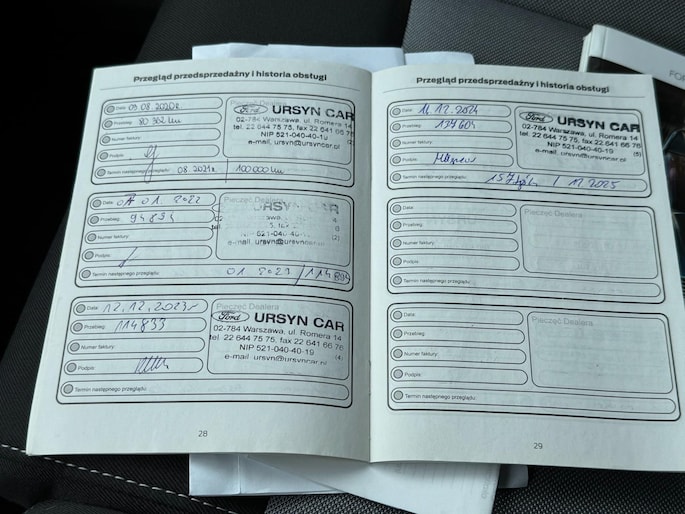 Przegląd przedsprzedażny i historia obsługi
Data: 03 08.2020r
Przebieg: 80 362 km
Numer faktury:
Podpis:
Termin następnego przeglądu: 08.2021r. / 100 000 km
Pieczęć Dealera
Ford URSYN CAR
02-784 Warszawa, ul. Romera 14
tel. 22 644 75 75, fax 22 641 66 76
NIP 521-040-40-19
e-mail. ursyn@ursyncar.pl
Data: 07 01. 2022
Przebieg: 94894
Numer faktury:
Podpis:
Termin następnego przeglądu: 01 2023 / 114 894
Pieczęć Dealera
CAR
NIP 521-040-40-
e-mail. ursyn@ursyncar
(2)
Data: 12.12.2023r
Przebieg: 114833
Numer faktury:
Podpis:
Termin następnego przeglądu:
Pieczęć Dealera
Ford URSYN CAR
02-784 Warszawa, ul. Romera 14
tel. 22 644 75 75, fax 22 641 66 76
NIP 521-040-40-19
e-mail. ursyn@ursyncar.pl
(4)
28
Przegląd przedsprzedażny i historia obsługi
Data: 12.2024
Przebieg: 137604
Numer faktury:
Podpis:
Termin następnego przeglądu: 157 / 12 2025
Ford URSYN CAR
02-784 Warszawa, ul. Romera 14
tel. 22 644 75 75, fax 22 641 66 76
NIP 521-040-40-19
e-mail. ursyn@ursyncar.pl
Data:
Przebieg:
Numer faktury:
Podpis:
Termin następnego przeglądu:
Pieczęć Dealera
Data:
Przebieg:
Numer faktury:
Podpis:
Termin następnego przeglądu:
Pieczęć Dealera
29